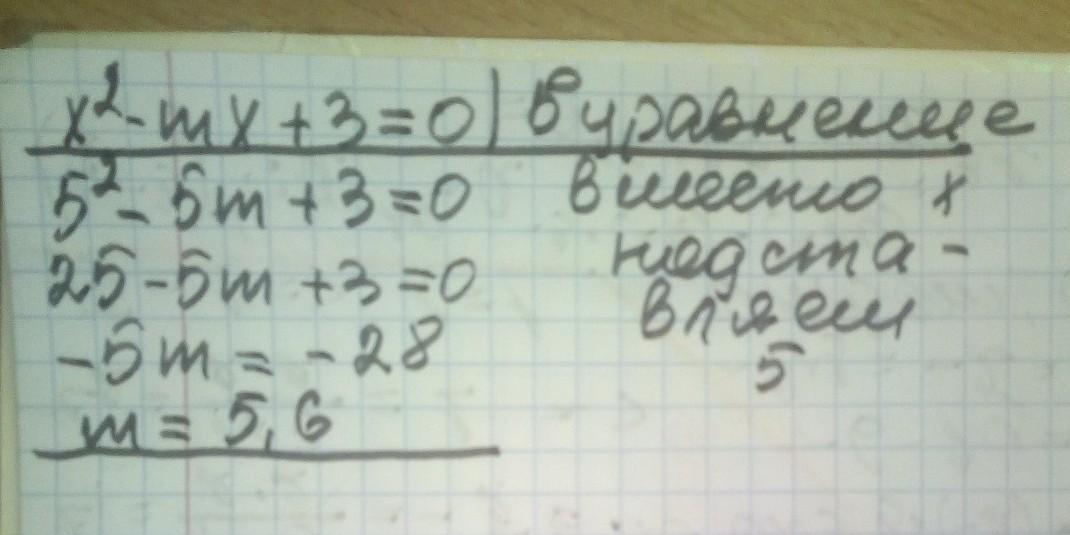 x² - mx + 3 = 0 | В уравнение
5² - 5m + 3 = 0 вместо x
25 - 5m + 3 = 0 подста-
вляем
-5m = -28 5
m = 5,6